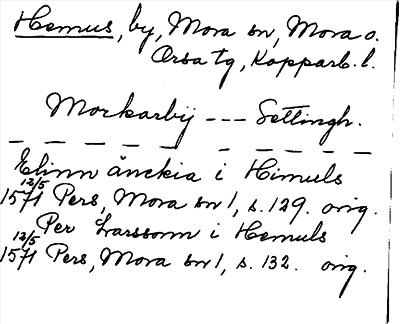 Hemus, by, Mora sn, Mora o.
Orsa tg, Kopparb. l.
Morkarbÿ --- Settingh.
Elinn änckia i Himuls
12/5 1571 Pers, Mora sn 1, s. 129. orig.
Per Larssonn i Hemuls
12/5 1571 Pers, Mora sn 1, s. 132. orig.